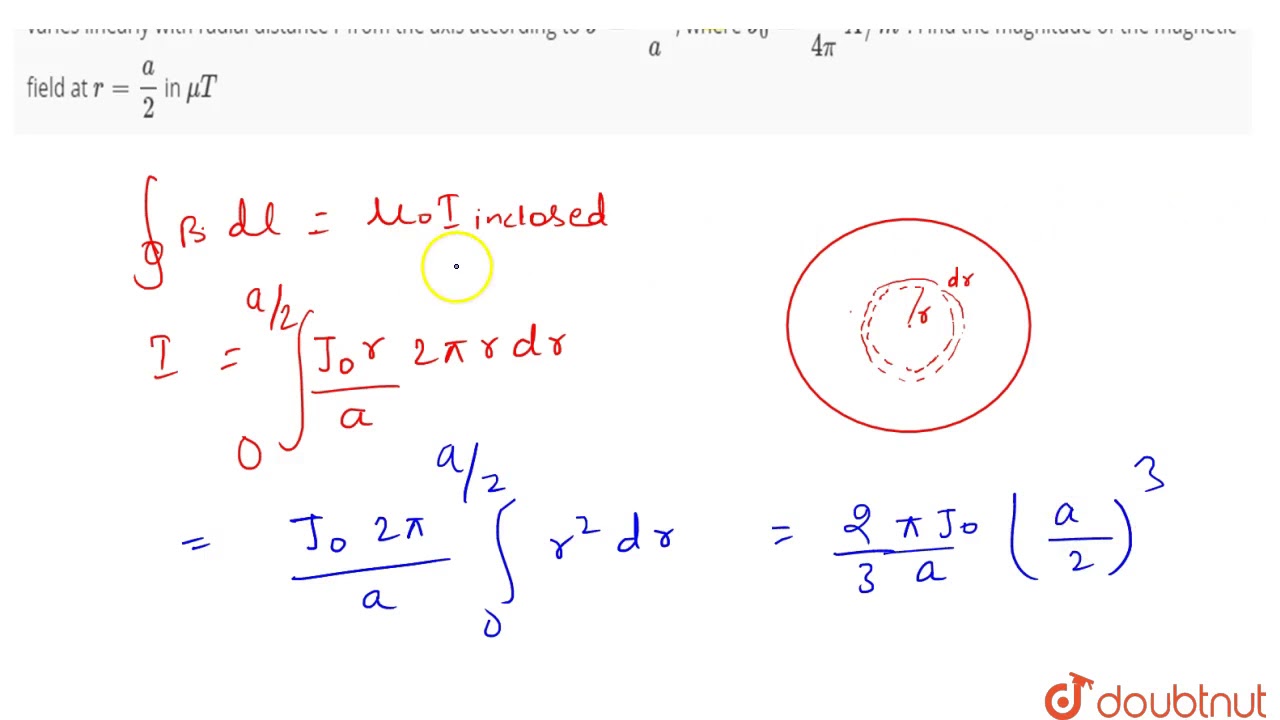 varies linearly with radial distance r from the axis according to J a , where J₀ 4π A/m . Find the magnitude of the magnetic
field at r = a/2 in μT
∮ B. dl = μ₀ I inclosed
dr
r
I = ∫₀^{a/2} J₀r/a 2πr dr
= J₀ 2π/a ∫₀^{a/2} r² dr = 2/3 πJ₀/a (a/2)³
doubtnut